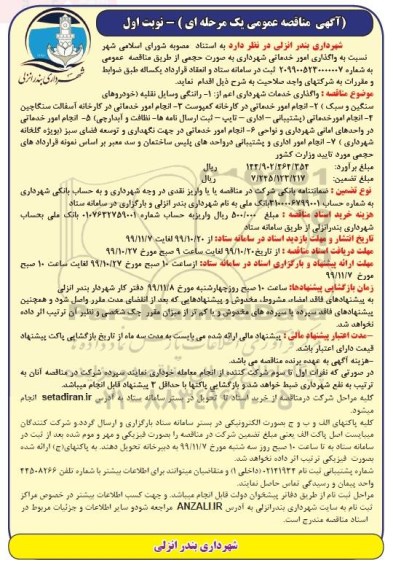 (آگهی مناقصه عمومی یک مرحله ای) - نوبت اول
شهرداری بندر انزلی در نظر دارد به استناد مصوبه شورای اسلامی شهر
نسبت به واگذاری امور خدماتی شهرداری به صورت حجمی از طریق مناقصه عمومی
به شماره ۲۰۹۹۰۰۵۲۳۰۰۰۰۰۰۷ ثبت در سامانه ستاد و انعقاد قرارداد یکساله طبق ضوابط
و مقررات به شرکتهای واجد صلاحیت به شرح ذیل اقدام نماید.
موضوع مناقصه : واگذاری خدمات شهرداری اعم از: ۱- رانندگی وسایل نقلیه (خودروهای
سنگین و سبک) ۲- انجام امور خدماتی در کارخانه کمپوست ۳- انجام امور خدماتی در کارخانه آسفالت سنگاچین
۴- انجام امورخدماتی (پشتیبانی – اداری – تایپ – ثبت ارسال نامه ها- نظافت و آبدارچی) ۵- انجام امور خدماتی
در واحدهای امانی شهرداری و نواحی ۶- انجام امور خدماتی در جهت نگهداری و توسعه فضای سبز (بویژه گلخانه
شهرداری) ۷- انجام امور اداری و پشتیبانی درواحد های پلیس ساختمان و سد معبر بر اساس نمونه قرارداد های
حجمی مورد تایید وزارت کشور
مبلغ برآورد: ۱۴۴/۹۰۲/۴۶۴/۳۵۴ ریال
مبلغ تضمین: ۷/۲۴۵/۱۲۳/۲۱۷ ریال
نوع تضمین : ضمانتنامه بانکی شرکت در مناقصه یا یا واریز نقدی در وجه شهرداری و به حساب بانکی شهرداری
به شماره حساب ۳۱۰۰۰۰۶۷۹۹۰۰۱ بانک ملی به نام شهرداری بندر انزلی و بارگزاری در سامانه ستاد
هزینه خرید اسناد مناقصه : مبلغ ۵۰۰/۰۰۰ ریال واریزبه حساب شماره ۰۱۰۷۶۳۲۷۵۹۰۰۱ بانک ملی بحساب
شهرداری بندرانزلی از طریق سامانه ستاد
تاریخ انتشار و مهلت بازدید اسناد در سامانه ستاد: از ۹۹/۱۰/۲۰ لغایت ۹۹/۱۱/۷
مهلت دریافت اسناد مناقصه : ازتاریخ ۹۹/۱۰/۲۰ لغایت ساعت ۹ صبح مورخ ۹۹/۱۰/۲۷
مهلت ارائه پیشنهاد و بارگزاری اسناد در سامانه ستاد: ازساعت ۱۰ صبح مورخ ۹۹/۱۰/۲۷ لغایت ساعت ۱۰ صبح
مورخ ۹۹/۱۱/۷
زمان بازگشایی پیشنهادها: ساعت ۱۰ صبح روزچهارشنبه مورخ ۹۹/۱۱/۸ دفتر کار شهردار بندر انزلی
به پیشنهادهای فاقد امضاء، مشروط، مخدوش و پیشنهادهایی که بعد از انقضای مدت مقرر واصل شود و همچنین
پیشنهادهای فاقد سپرده یا سپرده های مخدوش و یا کم تر از میزان مقرر چک شخصی و نظیر آن ترتیب اثر داده
نخواهد شد.
-مدت اعتبار پیشنهاد مالی : پیشنهاد مالی ارائه شده می بایست به مدت سه ماه از تاریخ بازگشایی پاکت پیشنهاد
قیمت دارای اعتبار باشد.
-هزینه آگهی به عهده برنده مناقصه می باشد.
در صورتی که نفرات اول تا سوم شرکت کننده از انجام معامله خودداری نمایند سپرده شرکت در مناقصه آنان به
ترتیب به نفع شهرداری ضبط خواهد شد و بازگشایی پاکتها با حداقل ۳ پیشنهاد قابل انجام میباشد.
کلیه مراحل شرکت درمناقصه از خرید اسناد تا تحویل در بستر سامانه ستاد به آدرس setadiran.ir انجام
میشود.
کلیه پاکتهای الف و ب و ج بصورت الکترونیکی در بستر سامانه ستاد بارگزاری و ارسال گردد.و شرکت کنندگان
میبایست اصل پاکت الف یعنی مبلغ تضمین شرکت در مناقصه را بصورت فیزیکی و مهر و موم شده بعد از ثبت در
سامانه ستاد به تا ساعت ۱۰ صبح روز سه شنبه مورخ ۹۹/۱۱/۷ به دبیرخانه تحویل دهند. به پاکتهای(ج) ارائه شده
بصورت فیزیکی ترتیب اثر داده نخواهد شد.
شماره پشتیبانی ثبت نام ۰۲۱۴۱۹۳۴ (داخلی ۱) و متقاضیان میتوانند برای اطلاعات بیشتر با شماره تلفن ۴۴۵۰۸۲۶۶
واحد پیمان و رسیدگی تماس حاصل نمایند.
مراحل ثبت نام از طریق دفاتر پیشخوان دولت قابل انجام میباشد. و جهت کسب اطلاعات بیشتر در خصوص مراکز
ثبت نام به سایت شهرداری بندرانزلی به آدرس ANZALI.IR مراجعه شودو سایر اطلاعات و جزئیات مربوط در
اسناد مناقصه مندرج است.
شهرداری بندر انزلی